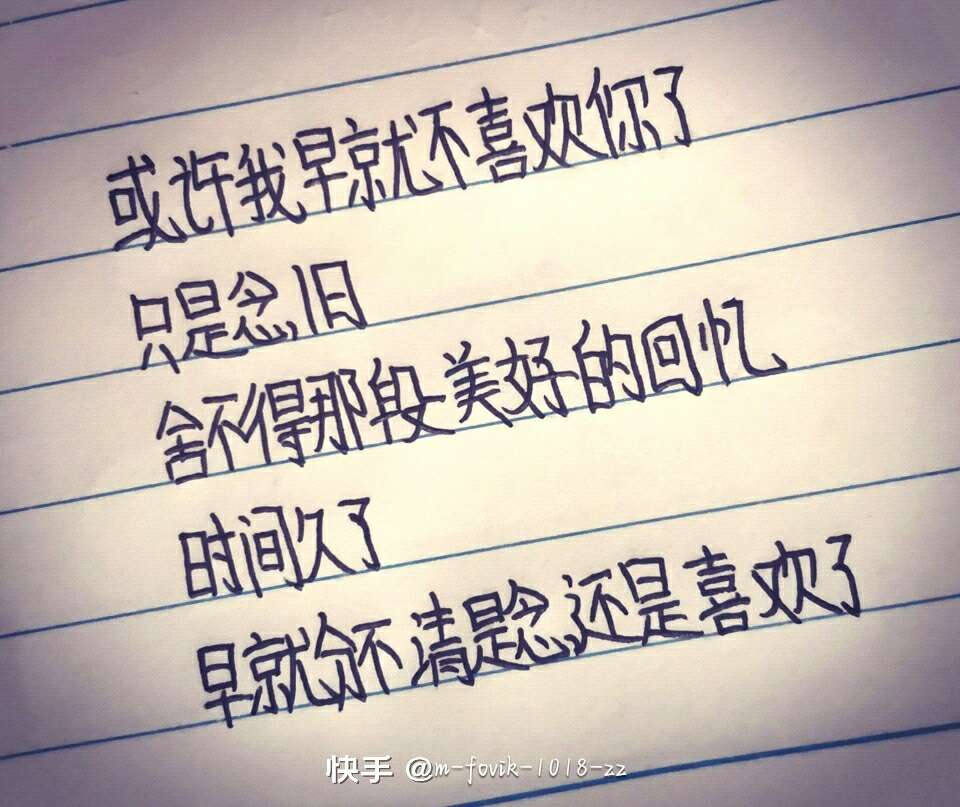 或许我早就不喜欢你了
只是念旧
舍不得那段美好的回忆
时间久了
早就分不清是念还是喜欢了
快手 @m-fovik-1018-zz